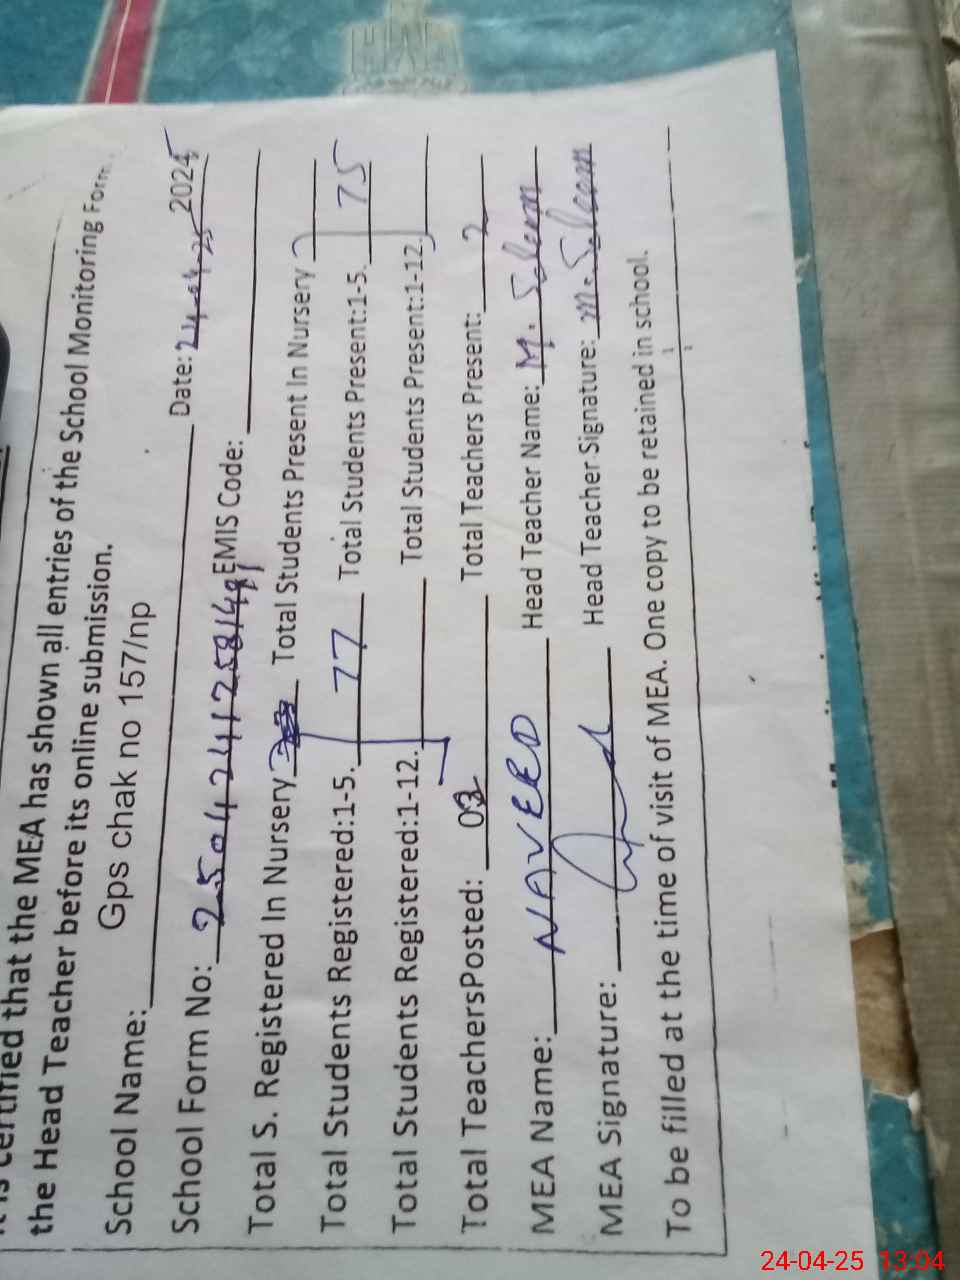 It is certified that the MEA has shown all entries of the School Monitoring Form
the Head Teacher before its online submission.
School Name: Gps chak no 157/np Date: 24.04.25 2024
School Form No: EMIS Code:
Total S. Registered In Nursery Total Students Present In Nursery
Total Students Registered:1-5. 77 Total Students Present:1-5. 75
Total Students Registered:1-12. Total Students Present:1-12.
Total TeachersPosted: 03 Total Teachers Present: 2
MEA Name: NAVEED Head Teacher Name: M. Saleem
MEA Signature: Head Teacher Signature: M. Saleem
To be filled at the time of visit of MEA. One copy to be retained in school.
24-04-25 13:04